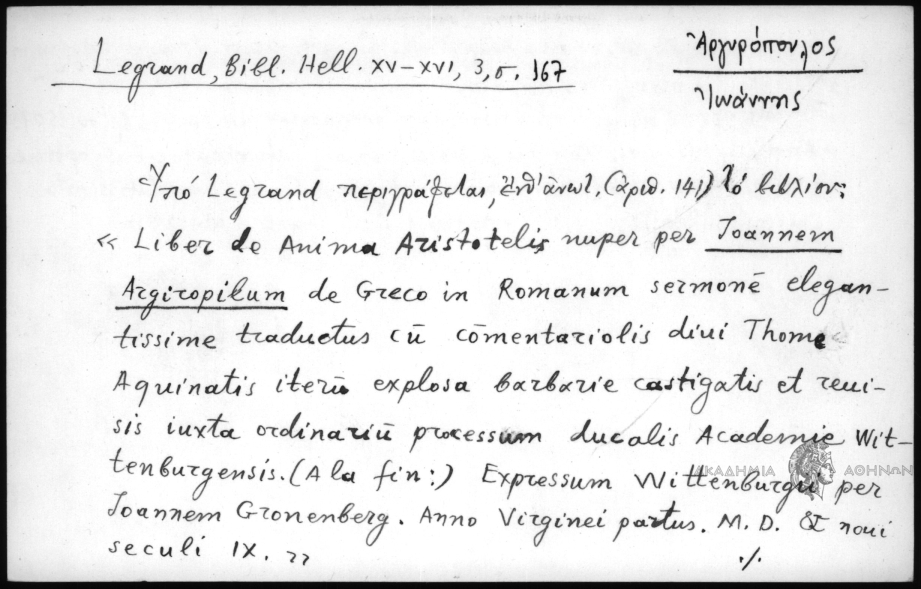 Legrand, Bibl. Hell. XV–XVI, 3, σ. 167
Ἀργυρόπουλος
Ἰωάννης
Ὑπό Legrand περιγράφεται, ἐνθ' ἀνωτ. (ἀριθ. 141) τό βιβλίον:
« Liber de Anima Aristotelis nuper per Joannem
Argiropilum de Greco in Romanum sermonē elegan-
tissime traductus cū cōmentariolis diui Thome
Aquinatis iterū explosa barbarie castigatis et reui-
sis iuxta ordinariū processum ducalis Academie Wit-
tenburgensis. (A la fin:) Expressum Wittenburgii per
Joannem Gronenberg. Anno Virginei partus. M. D. & noui
seculi IX. »
./.
ΑΚΑΔΗΜΙΑ ΑΘΗΝΩΝ